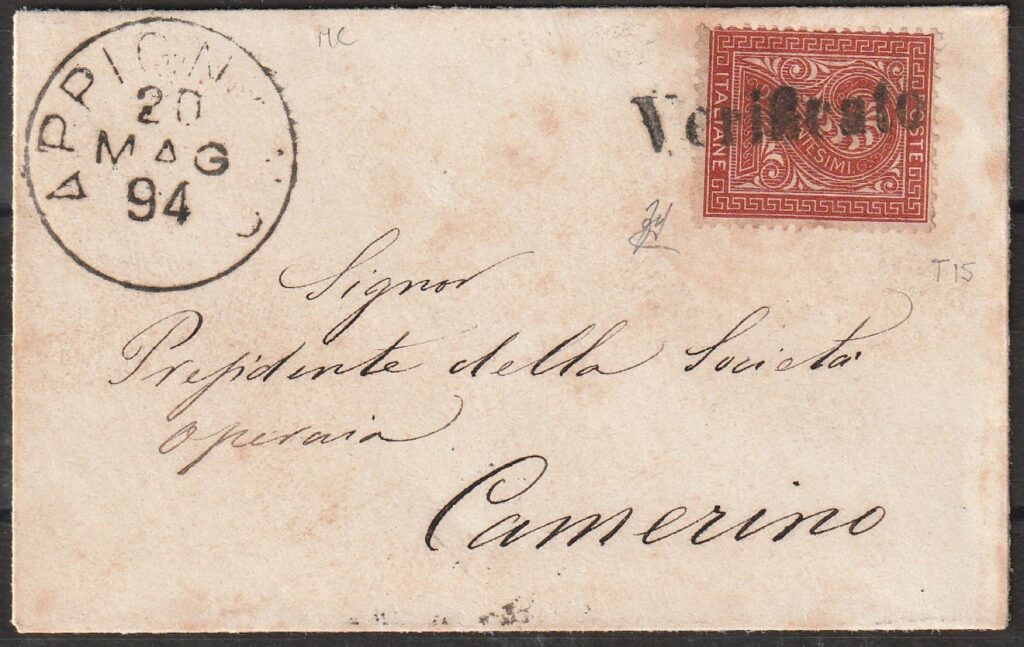 MC
APPIGN
20
MAG
94
ITALIANE
POSTE
CENTESIMI
Verificato
T15
Signor
Presidente della Società
operaia
Camerino